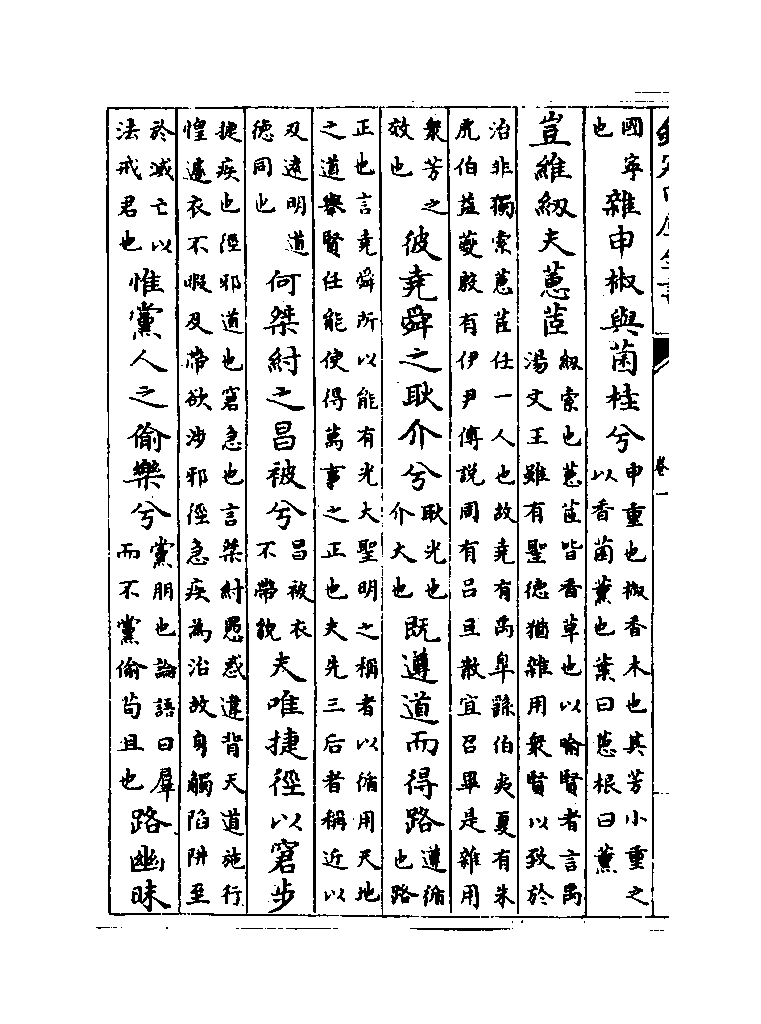 欽定四庫全書 卷一
國寧也雜申椒與菌桂兮申重也椒香木也其芳小重之以香菌薰也葉曰蕙根曰薰
豈維紉夫蕙茝紉索也蕙茝皆香草也以喻賢者言禹湯文王雖有聖德猶雜用衆賢以致於
治非獨索蕙茝任一人也故堯有禹臯繇伯夷夏有朱虎伯益夔殷有伊尹傅說周有呂旦散宜召畢是雜用
衆芳之效也彼堯舜之耿介兮耿光也介大也既遵道而得路遵循也路
正也言堯舜所以能有光大聖明之稱者以循用天地之道舉賢任能使得萬事之正也夫先三后者稱近以
及遠明道德同也何桀紂之昌被兮昌被衣不帶貌夫唯捷徑以窘步
捷疾也徑邪道也窘急也言桀紂愚惑違背天道施行惶遽衣不暇及帶欲涉邪徑急疾為治故身觸陷阱至
於滅亡以法戒君也惟黨人之偷樂兮黨朋也論語曰羣而不黨偷苟且也路幽昧